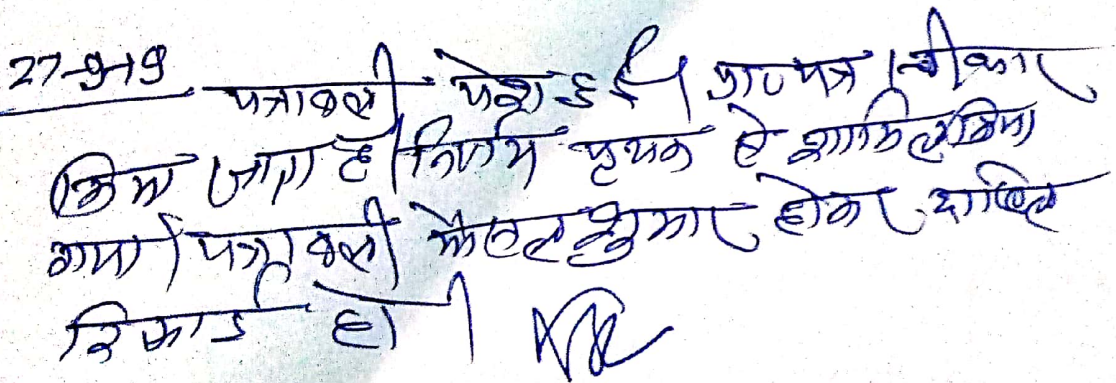 27-9-19 पत्रावली पेश हुई। प्रा० पत्र स्वीकार
किया जाता है। निर्णय पृथक से शामिल किया
गया। पत्रावली फैसल शुमार होकर दाखिल
रिकार्ड हो।